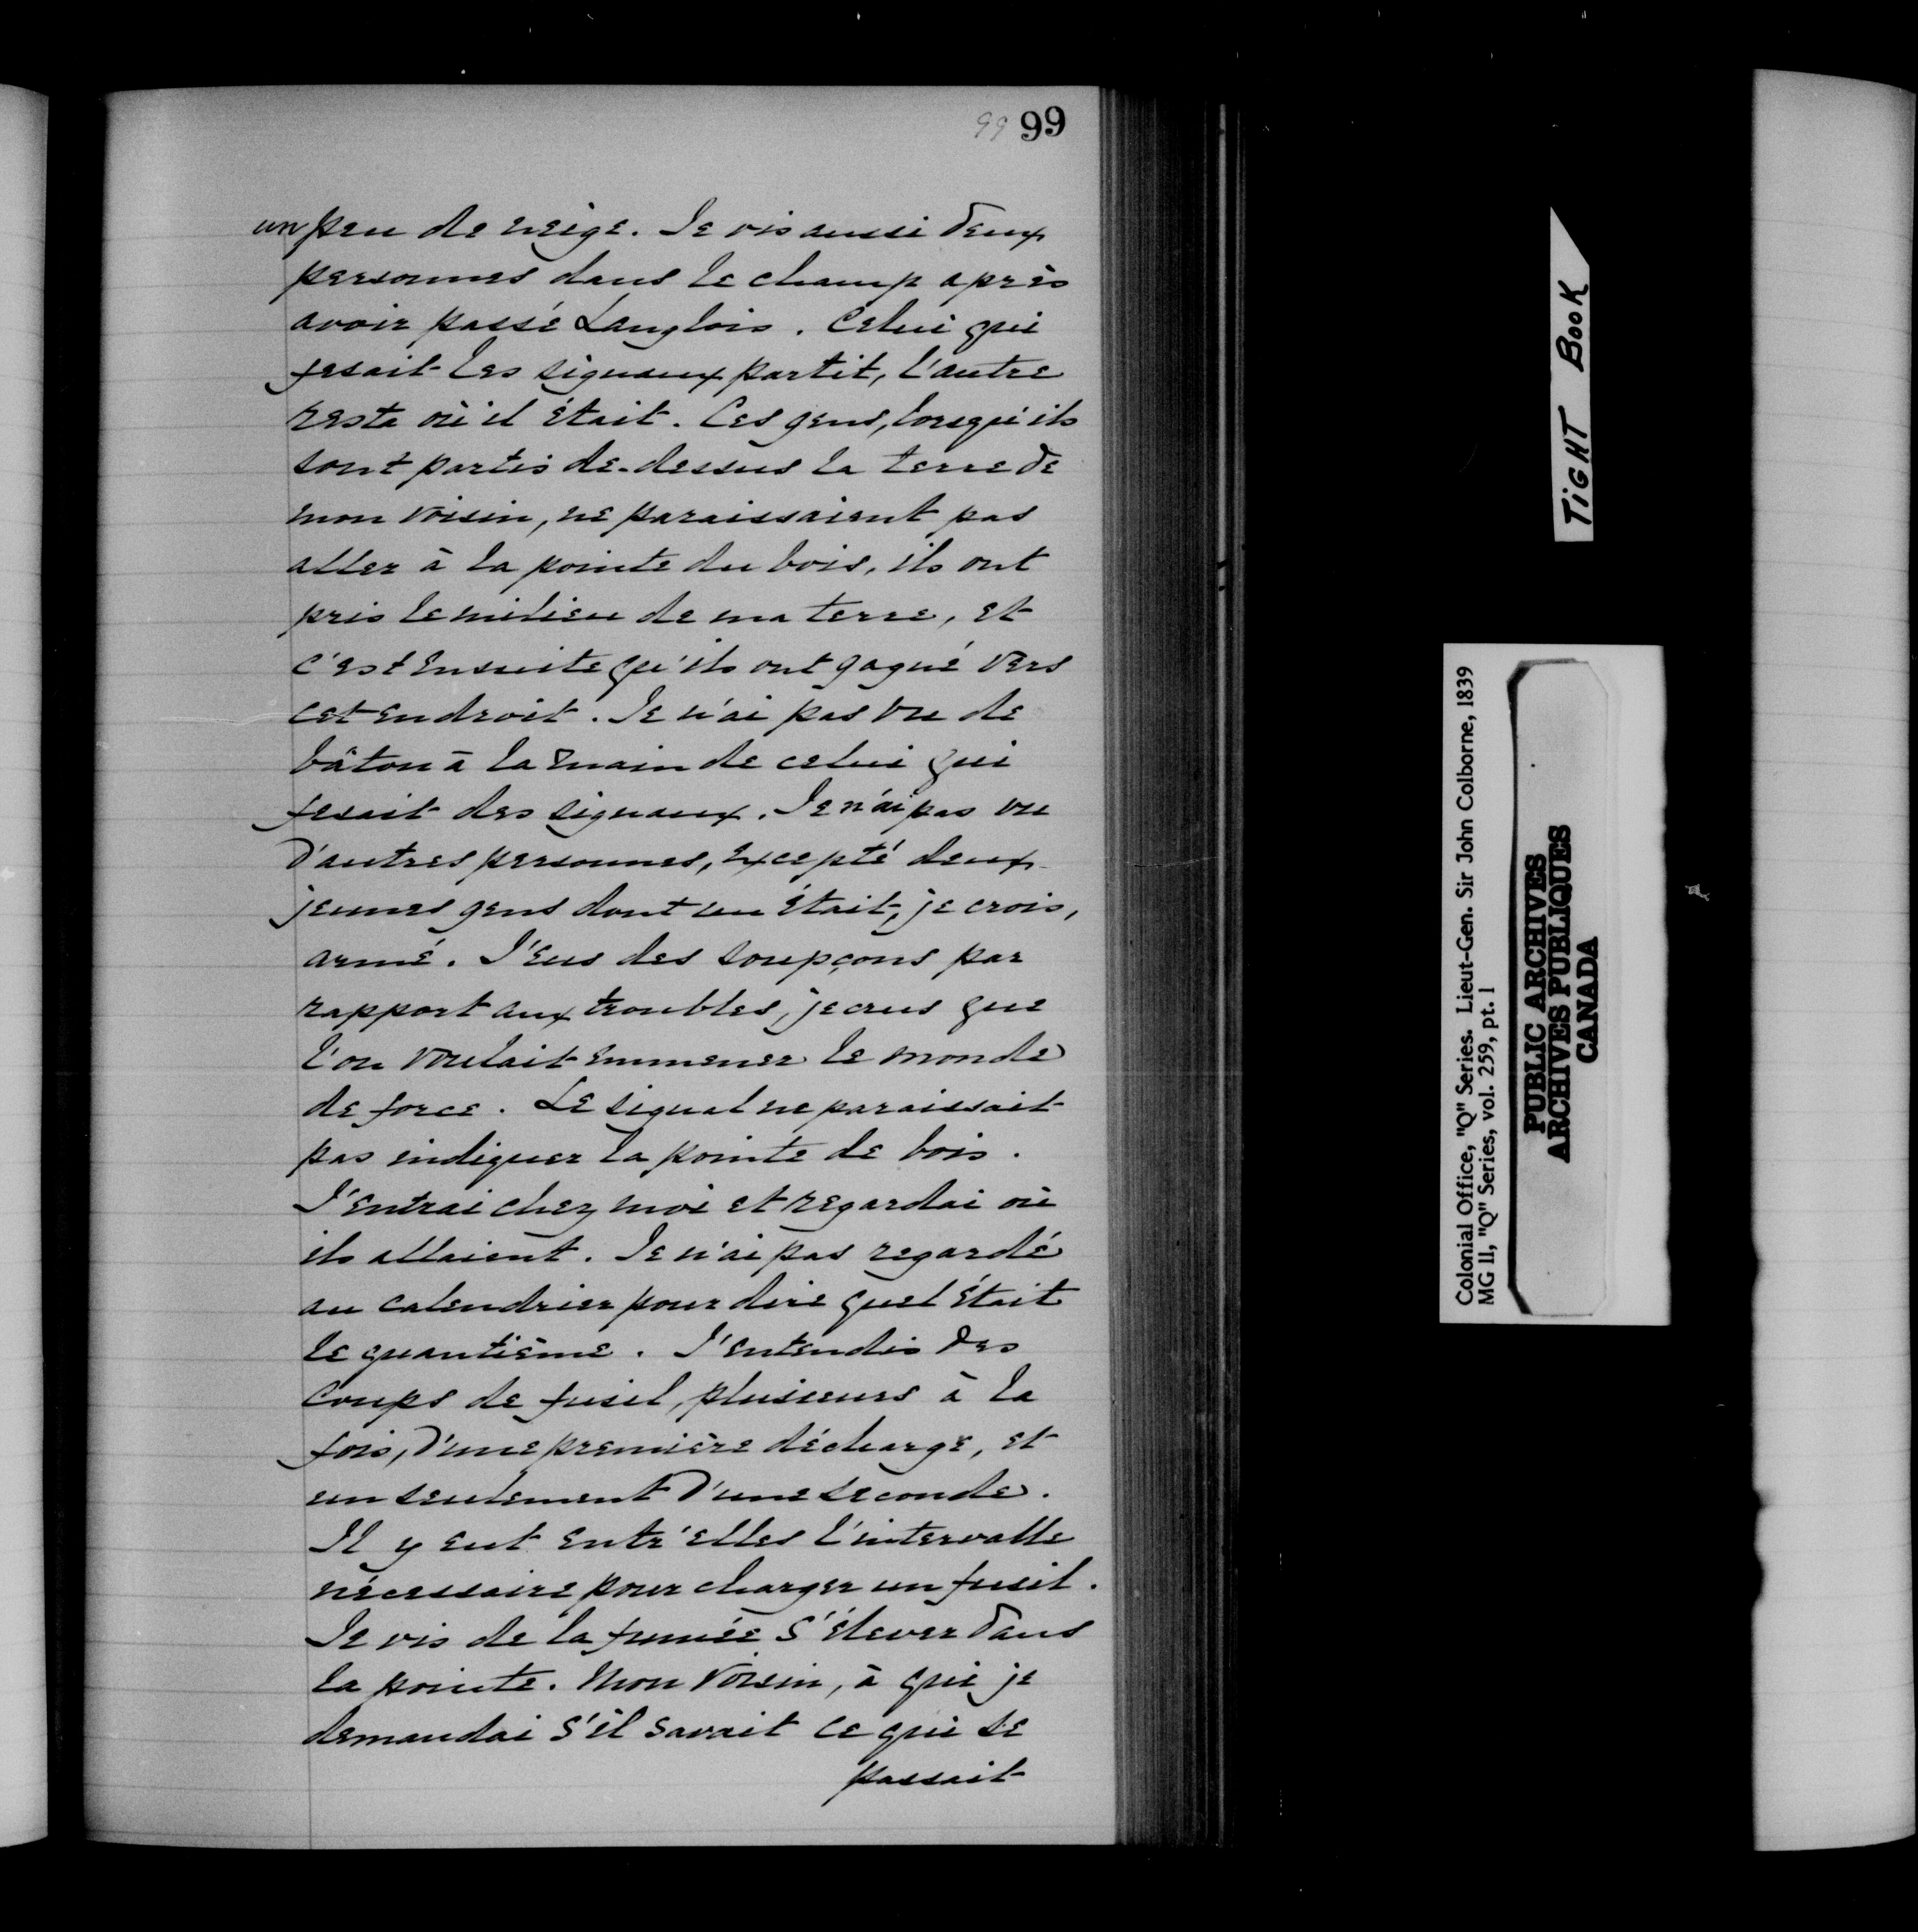 99 99
un peu de neige. Je vis aussi deux
personnes dans le champ après
avoir passé Langlois. Celui qui
fesait les signaux partit, l'autre
resta où il était. Ces gens, lorsqu'ils
sont partis de-dessus la terre de
mon voisin, ne paraissaient pas
aller à la pointe du bois, ils ont
pris le milieu de ma terre, et
c'est ensuite qu'ils ont gagné vers
cet endroit. Je n'ai pas vu de
bâton à la main de celui qui
fesait des signaux. Je n'ai pas vu
d'autres personnes, excepté deux
jeunes gens dont un était, je crois,
armé. J'eus des soupçons par
rapport aux troubles, je crus que
l'on voulait emmener le monde
de force. Le signal ne paraissait
pas indiquer la pointe de bois.
J'entrai chez moi et regardai où
ils allaient. Je n'ai pas regardé
au calendrier pour dire quel était
le quantième. J'entendis des
coups de fusil, plusieurs à la
fois, d'une première décharge, et
un seulement d'une seconde.
Il y eut entr'elles l'intervalle
nécessaire pour charger un fusil.
Je vis de la fumée s'élever dans
la pointe. Mon voisin, à qui je
demandai s'il savait ce qui se
passait
TIGHT BOOK
Colonial Office, "Q" Series. Lieut-Gen. Sir John Colborne, 1839
MG 11, "Q" Series, vol. 259, pt. 1
PUBLIC ARCHIVES
ARCHIVES PUBLIQUES
CANADA